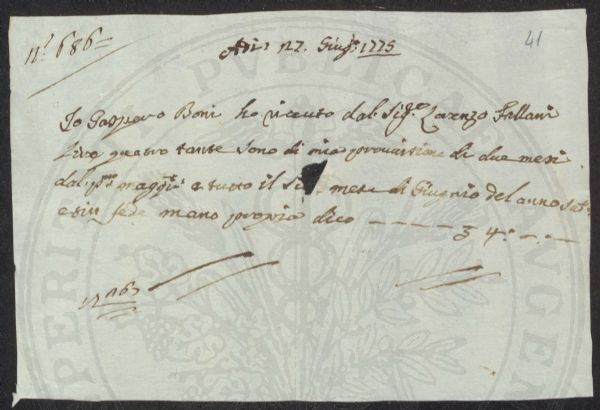 nº. 686=
41
Adi 27. Giugº. 1775
Io Gasspero Boni ho riceuto dal Sigre Lorenzo Fallani
lire quatro tante sono di mia provvisione di due mesi
dal pmo maggio a tutto il mese di Giugnio del anno
e in fede mano propria dico — — — — 4. — . —
PERI
PUBLICA